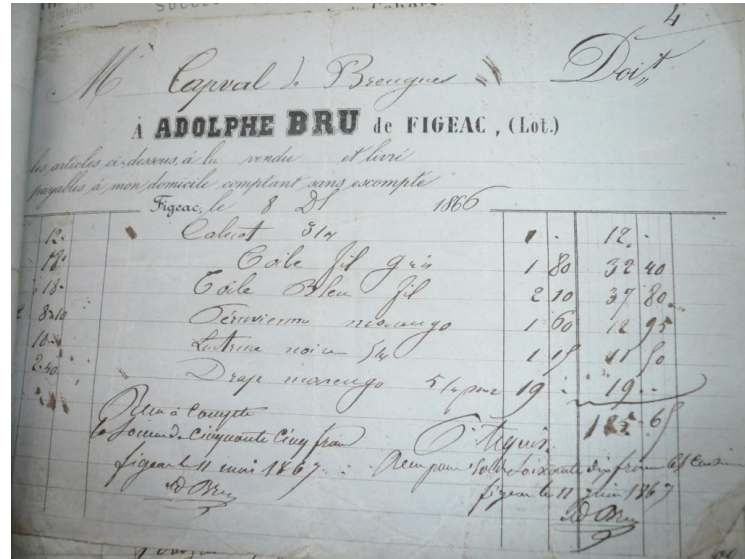 4
Mr Capval de Brengues Doit
À ADOLPHE BRU de FIGEAC, (Lot.)
les articles ci-dessous, à lu vendu et livré
payables à mon domicile comptant sans escompte
Figeac, le 8 1866
12 Calicot 3/4 1 - 12 -
18 Toile fil gris 1 80 32 40
18 Toile Bleu fil 2 10 37 80
8-10 Péruvienne marengo 1 60 12 95
10 Lustrine noire 5/4 1 15 11 50
2-40 Drap marengo 5/4 pour 19 - 19 -
125 65
Reçu à Compte
la Somme de Cinquante Cinq franc
figeac le 11 mai 1867
AdBru
Reçu pour Solde soixante dix francs 65
figeac le 11 juin 1867
AdBru